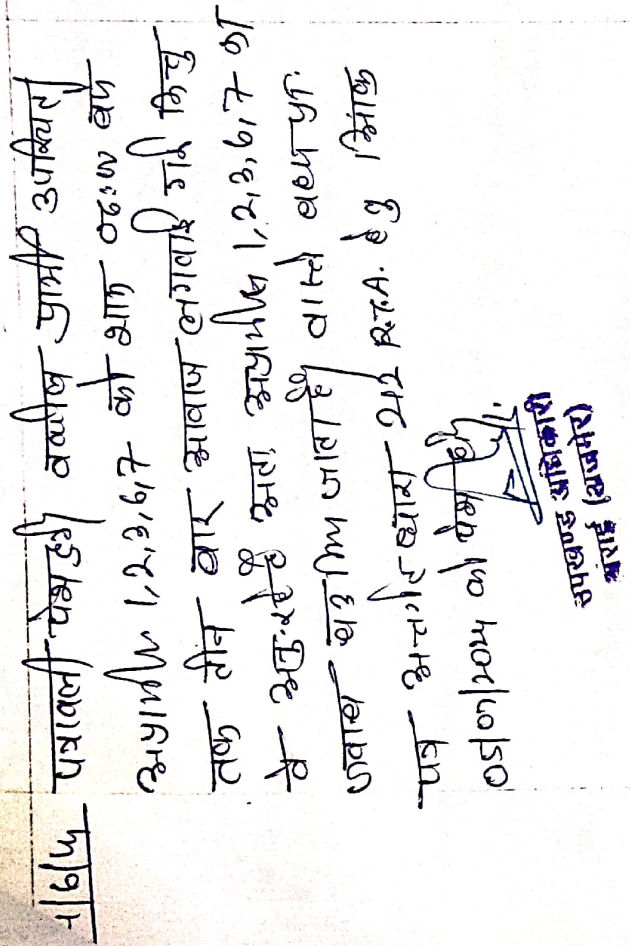 पत्रावली पेश हुई वकील प्रार्थी उपस्थित
अप्रार्थीगण 1,2,3,6,7 को शाम 06:00 बजे
तक तीन बार आवाज लगवाई गई किन्तु
वे अनु. रहे है अतः अप्रार्थीगण 1,2,3,6,7 का
जवाब बंद किया जाता है वास्ते बहस प्रा.
पत्र अन्तर्गत धारा 212 R.T.A. हेतु दिनांक
05/07/2024 को पेश हो
उपखण्ड अधिकारी